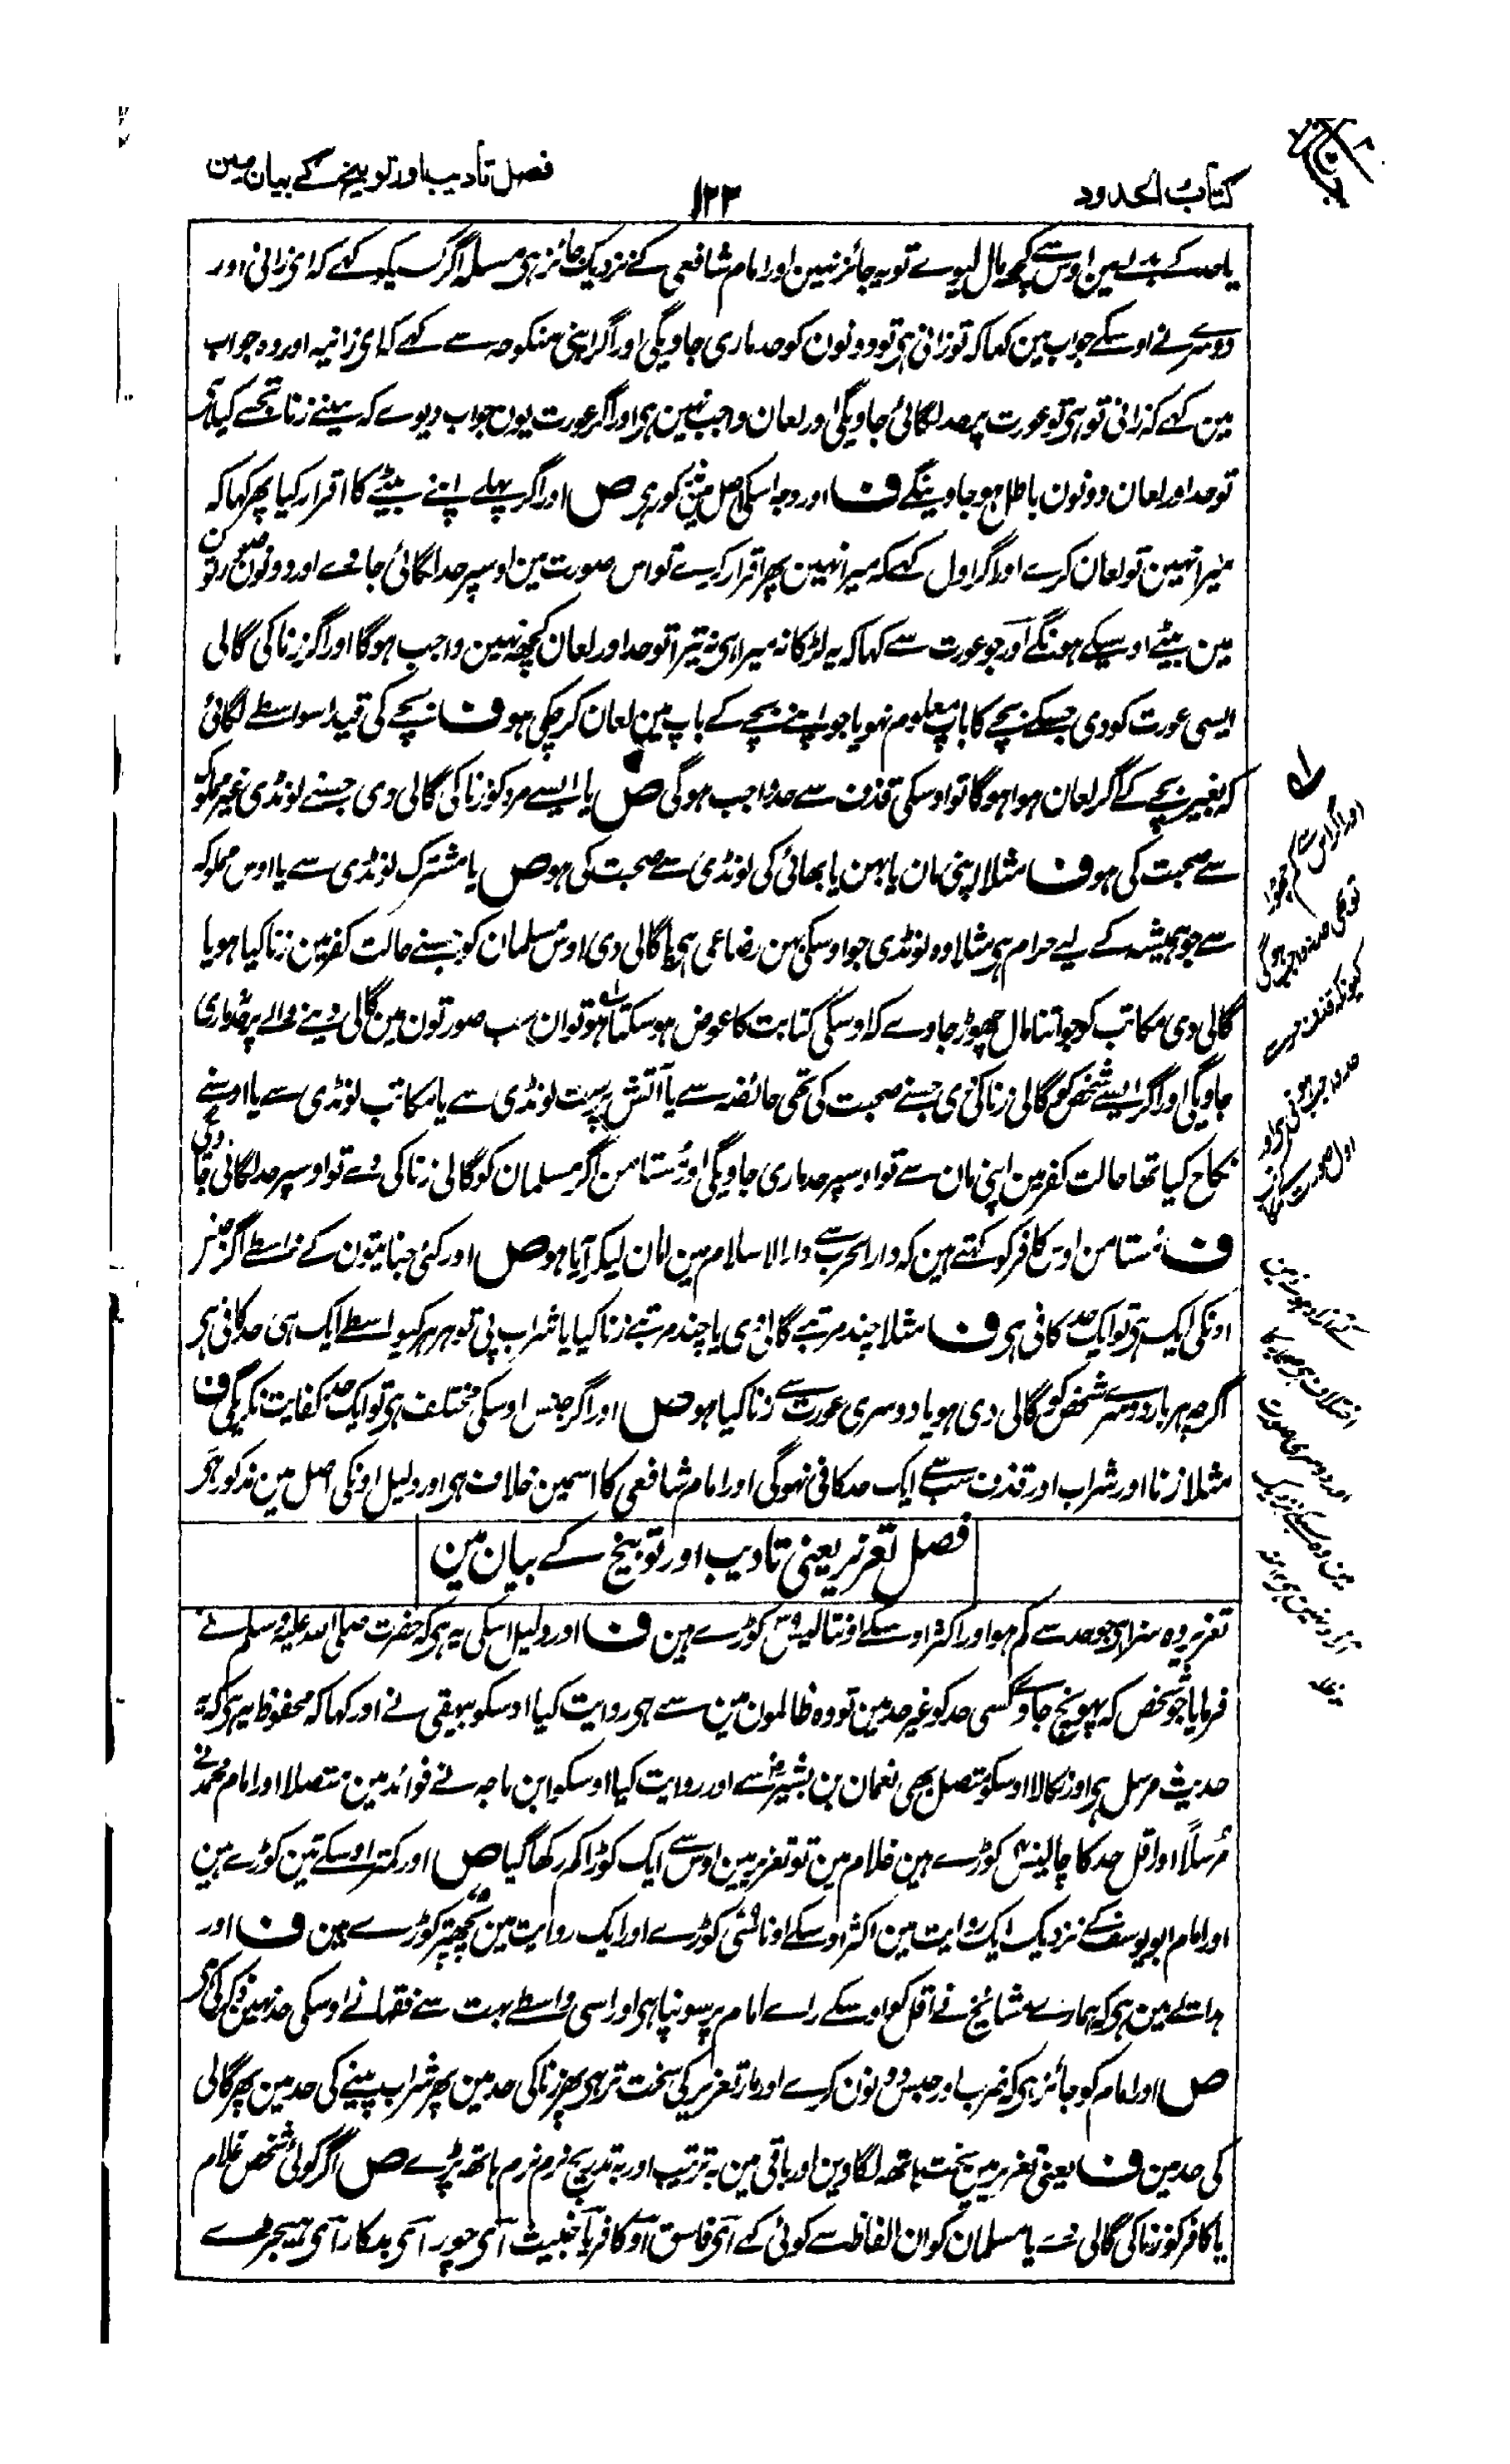 کتاب الحدود
۱۲۳
فصل تأدیب اور توبیخ کے بیان مین
یا حد کے بدلے مین اوس سے کچھ مال لیوے تو یہ جائز نہین اور امام شافعی کے نزدیک جائز ہی مسلہ اگر کسیکو کہے کہ ای زانی اور
دوسرے نے اوسکے جواب مین کہا کہ تو زانی ہی تو دونون کو حد ماری جاویگی اور اگر اپنی منکوحہ سے کہے کہ ای زانیہ اور وہ جواب
مین کہے کہ زانی تو ہی تو عورت پر حد لگائی جاویگی اور لعان واجب نہین ہی اور اگر عورت یون جواب دیوے کہ مینے زنا تجھسے کیا ہی
تو حد اور لعان دونون باطل ہو جاوینگے ف اور وجہ اسکی اصل مین مذکور ہی ص اور اگر پہلے اپنے بیٹے کا اقرار کیا پھر کہا کہ
میرا نہین تو لعان کرے اور اگر اول کہے کہ میرا نہین پھر اقرار کرے تو اس صورت مین اوسپر حد لگائی جاوے اور دونون صورتون
مین بیٹے اوسیکے ہونگے اور جو عورت سے کہا کہ یہ لڑکا نہ میرا ہی نہ تیرا تو حد اور لعان کچھ نہین واجب ہوگا اور اگر زنا کی گالی
ایسی عورت کو دی جسکے بچے کا باپ معلوم نہو یا جو اپنے بچے کے باپ مین لعان کر چکی ہو ف بچے کی قید اسواسطے لگائی
کہ بغیر بچے کے اگر لعان ہوا ہوگا تو اوسکی قذف سے حد واجب ہوگی ص یا ایسے مرد کو زنا کی گالی دی جسنے لونڈی غیر مملوکہ
سے صحبت کی ہو ف مثلا اپنی مان یا بہن یا بھائی کی لونڈی سے صحبت کی ہو ص یا مشترک لونڈی سے یا اوس مملوکہ
سے جو ہمیشہ کے لیے حرام ہی مثلا وہ لونڈی جو اوسکی بہن رضاعی ہی یا گالی دی اوس مسلمان کو جسنے حالت کفر مین زنا کیا ہو یا
گالی دی مکاتب کو جو اتنا مال چھوڑ جاوے کہ اوسکی کتابت کا عوض ہو سکتا ہو تو ان سب صورتون مین گالی دینے والے پر حد ماری
جاویگی اور اگر ایسے شخص کو گالی زنا کی دی جسنے صحبت کی تھی حائضہ سے یا آتش پرست لونڈی سے یا مکاتب لونڈی سے یا اوسنے
نکاح کیا تھا حالت کفر مین اپنی مان سے تو اوسپر حد ماری جاویگی اور مستامن اگر مسلمان کو گالی زنا کی دے تو اوسپر حد لگائی جاویگی
ف مستامن اوس کافر کو کہتے ہین کہ دار الحرب سے دار الاسلام مین امان لیکر آیا ہو ص اور کئی جنایتون کے واسطے اگر جنس
اونکی ایک ہی تو ایک حد کافی ہی ف مثلا چند مرتبے گالی دی یا چند مرتبے زنا کیا یا شراب پی تو ہر ہر کیواسطے ایک ہی حد کافی ہی
اگرچہ ہر بار دوسرے شخص کو گالی دی ہو یا دوسری عورت سے زنا کیا ہو ص اور اگر جنس اوسکی مختلف ہی تو ایک حد کفایت نکریگی ف
مثلا زنا اور شراب اور قذف سب سے ایک حد کافی نہوگی اور امام شافعی کا اسمین خلاف ہی اور دلیل اونکی اصل مین مذکور ہی
فصل تعزیر یعنی تادیب اور توبیخ کے بیان مین
تعزیر وہ سزا ہی جو حد سے کم ہو اور اکثر اوسکے اونتالیس کوڑے ہین ف اور دلیل اسکی یہ ہی کہ حضرت صلی اللہ علیہ وسلم نے
فرمایا جو شخص کہ پہونچ جاوے کسی حد کو غیر حد مین تو وہ ظالمون مین سے ہی روایت کیا اوسکو بیہقی نے اور کہا کہ محفوظ یہ ہی کہ یہ
حدیث مرسل ہی اور نکالا اوسکو متصل بھی نعمان بن بشیر سے اور روایت کیا اوسکو ابن ماجہ نے فوائد مین متصلا اور امام محمد نے
مرسلًا اور اقل حد کا چالیس کوڑے ہین غلام مین تو تعزیر مین اوس سے ایک کوڑا کم رکھا گیا ص اور کمتر اوسکے تین کوڑے ہین
اور امام ابو یوسف کے نزدیک ایک روایت مین اکثر اوسکے اوناسی کوڑے اور ایک روایت مین پچھتر کوڑے ہین ف اور
ہدایے مین ہی کہ ہمارے مشائخ نے اقل کو اوسکے راے امام پر سونپا ہی اور اسی واسطے بہت سے فقہا نے اوسکی حد نہین ذکر کی ہی
ص اور امام کو جائز ہی کہ ضرب اور حبس دونون کرے اور مار تعزیر کی سخت تر ہی پھر زنا کی حد مین پھر شراب پینے کی حد مین پھر گالی
کی حد مین ف یعنی تعزیر مین سخت ہاتھ لگاوین اور باقی مین بہ ترتیب اور بہ تدریج نرم نرم ہاتھ پڑے ص اگر کوئی شخص غلام
یا کافر کو زنا کی گالی دے یا مسلمان کو ان الفاظ سے کوئی کہے ای فاسق ای کافر یا خبیث ای چور ای بدکار ای ہیجڑے
اور اگر اس سے کم چھوڑا
تو بھی حد نہ واجب ہوگی
کیونکہ قذف
حد واجب ہوتی ہی اور